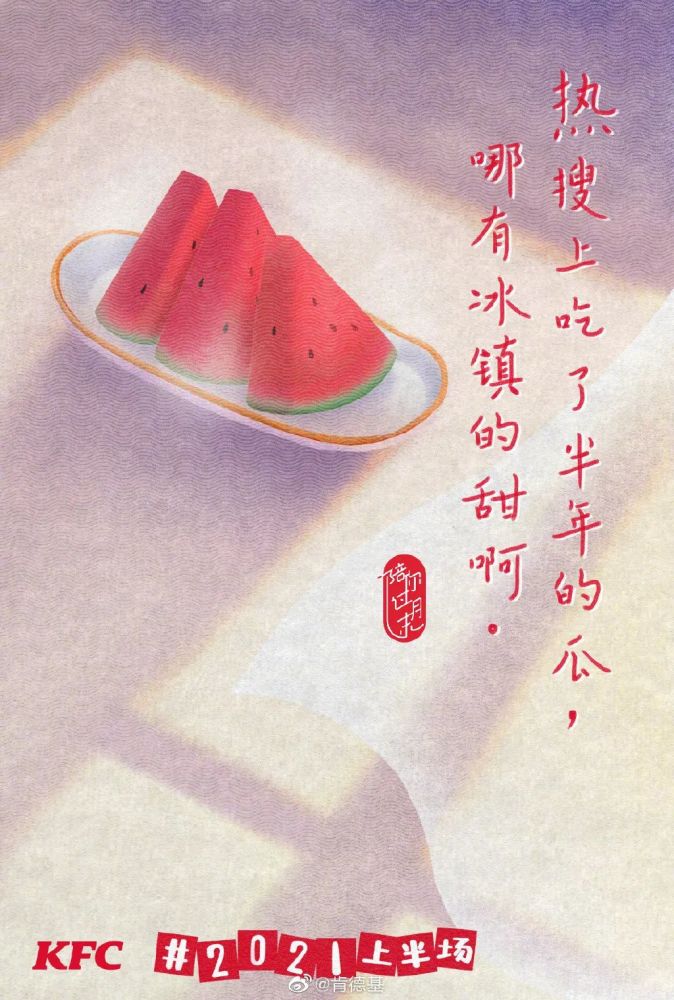 热搜上吃了半年的瓜，
哪有冰镇的甜啊。
KFC
#2021上半场
@肯德基